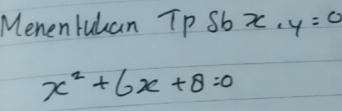 Menentukan Tp Sb x, y = 0
x² + 6x + 8 = 0